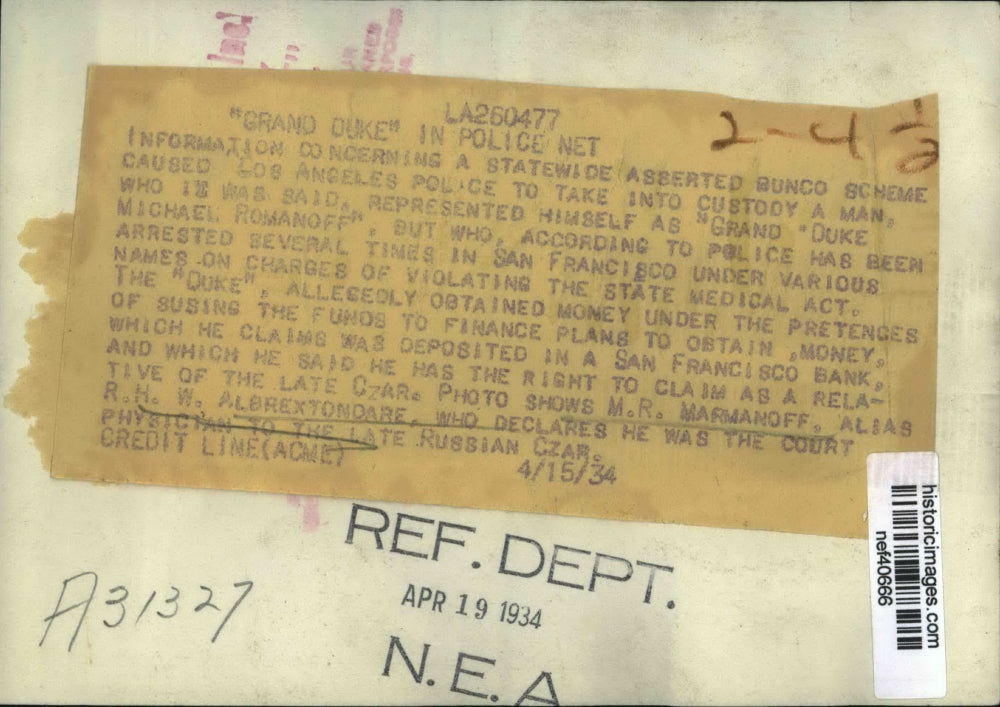 Inc!
LA260477
2-4 1/2
"GRAND DUKE" IN POLICE NET
INFORMATION CONCERNING A STATEWIDE ASSERTED BUNCO SCHEME
CAUSED LOS ANGELES POLICE TO TAKE INTO CUSTODY A MAN,
WHO IT WAS SAID, REPRESENTED HIMSELF AS "GRAND "DUKE
MICHAEL ROMANOFF", BUT WHO, ACCORDING TO POLICE HAS BEEN
ARRESTED SEVERAL TIMES IN SAN FRANCISCO UNDER VARIOUS
NAMES ON CHARGES OF VIOLATING THE STATE MEDICAL ACT.
THE "DUKE", ALLEGEDLY OBTAINED MONEY UNDER THE PRETENCES
OF SUSING THE FUNDS TO FINANCE PLANS TO OBTAIN ,MONEY,
WHICH HE CLAIMS WAS DEPOSITED IN A SAN FRANCISCO BANK,
AND WHICH HE SAID HE HAS THE RIGHT TO CLAIM AS A RELA-
TIVE OF THE LATE CZAR. PHOTO SHOWS M.R. MARMANOFF, ALIAS
R.H. W. ALBREXTONDARE, WHO DECLARES HE WAS THE COURT
PHYSICIAN TO THE LATE RUSSIAN CZAR.
CREDIT LINE(ACME) 4/15/34
REF. DEPT.
APR 19 1934
N.E.A
A31327
historicimages.com
nef40666